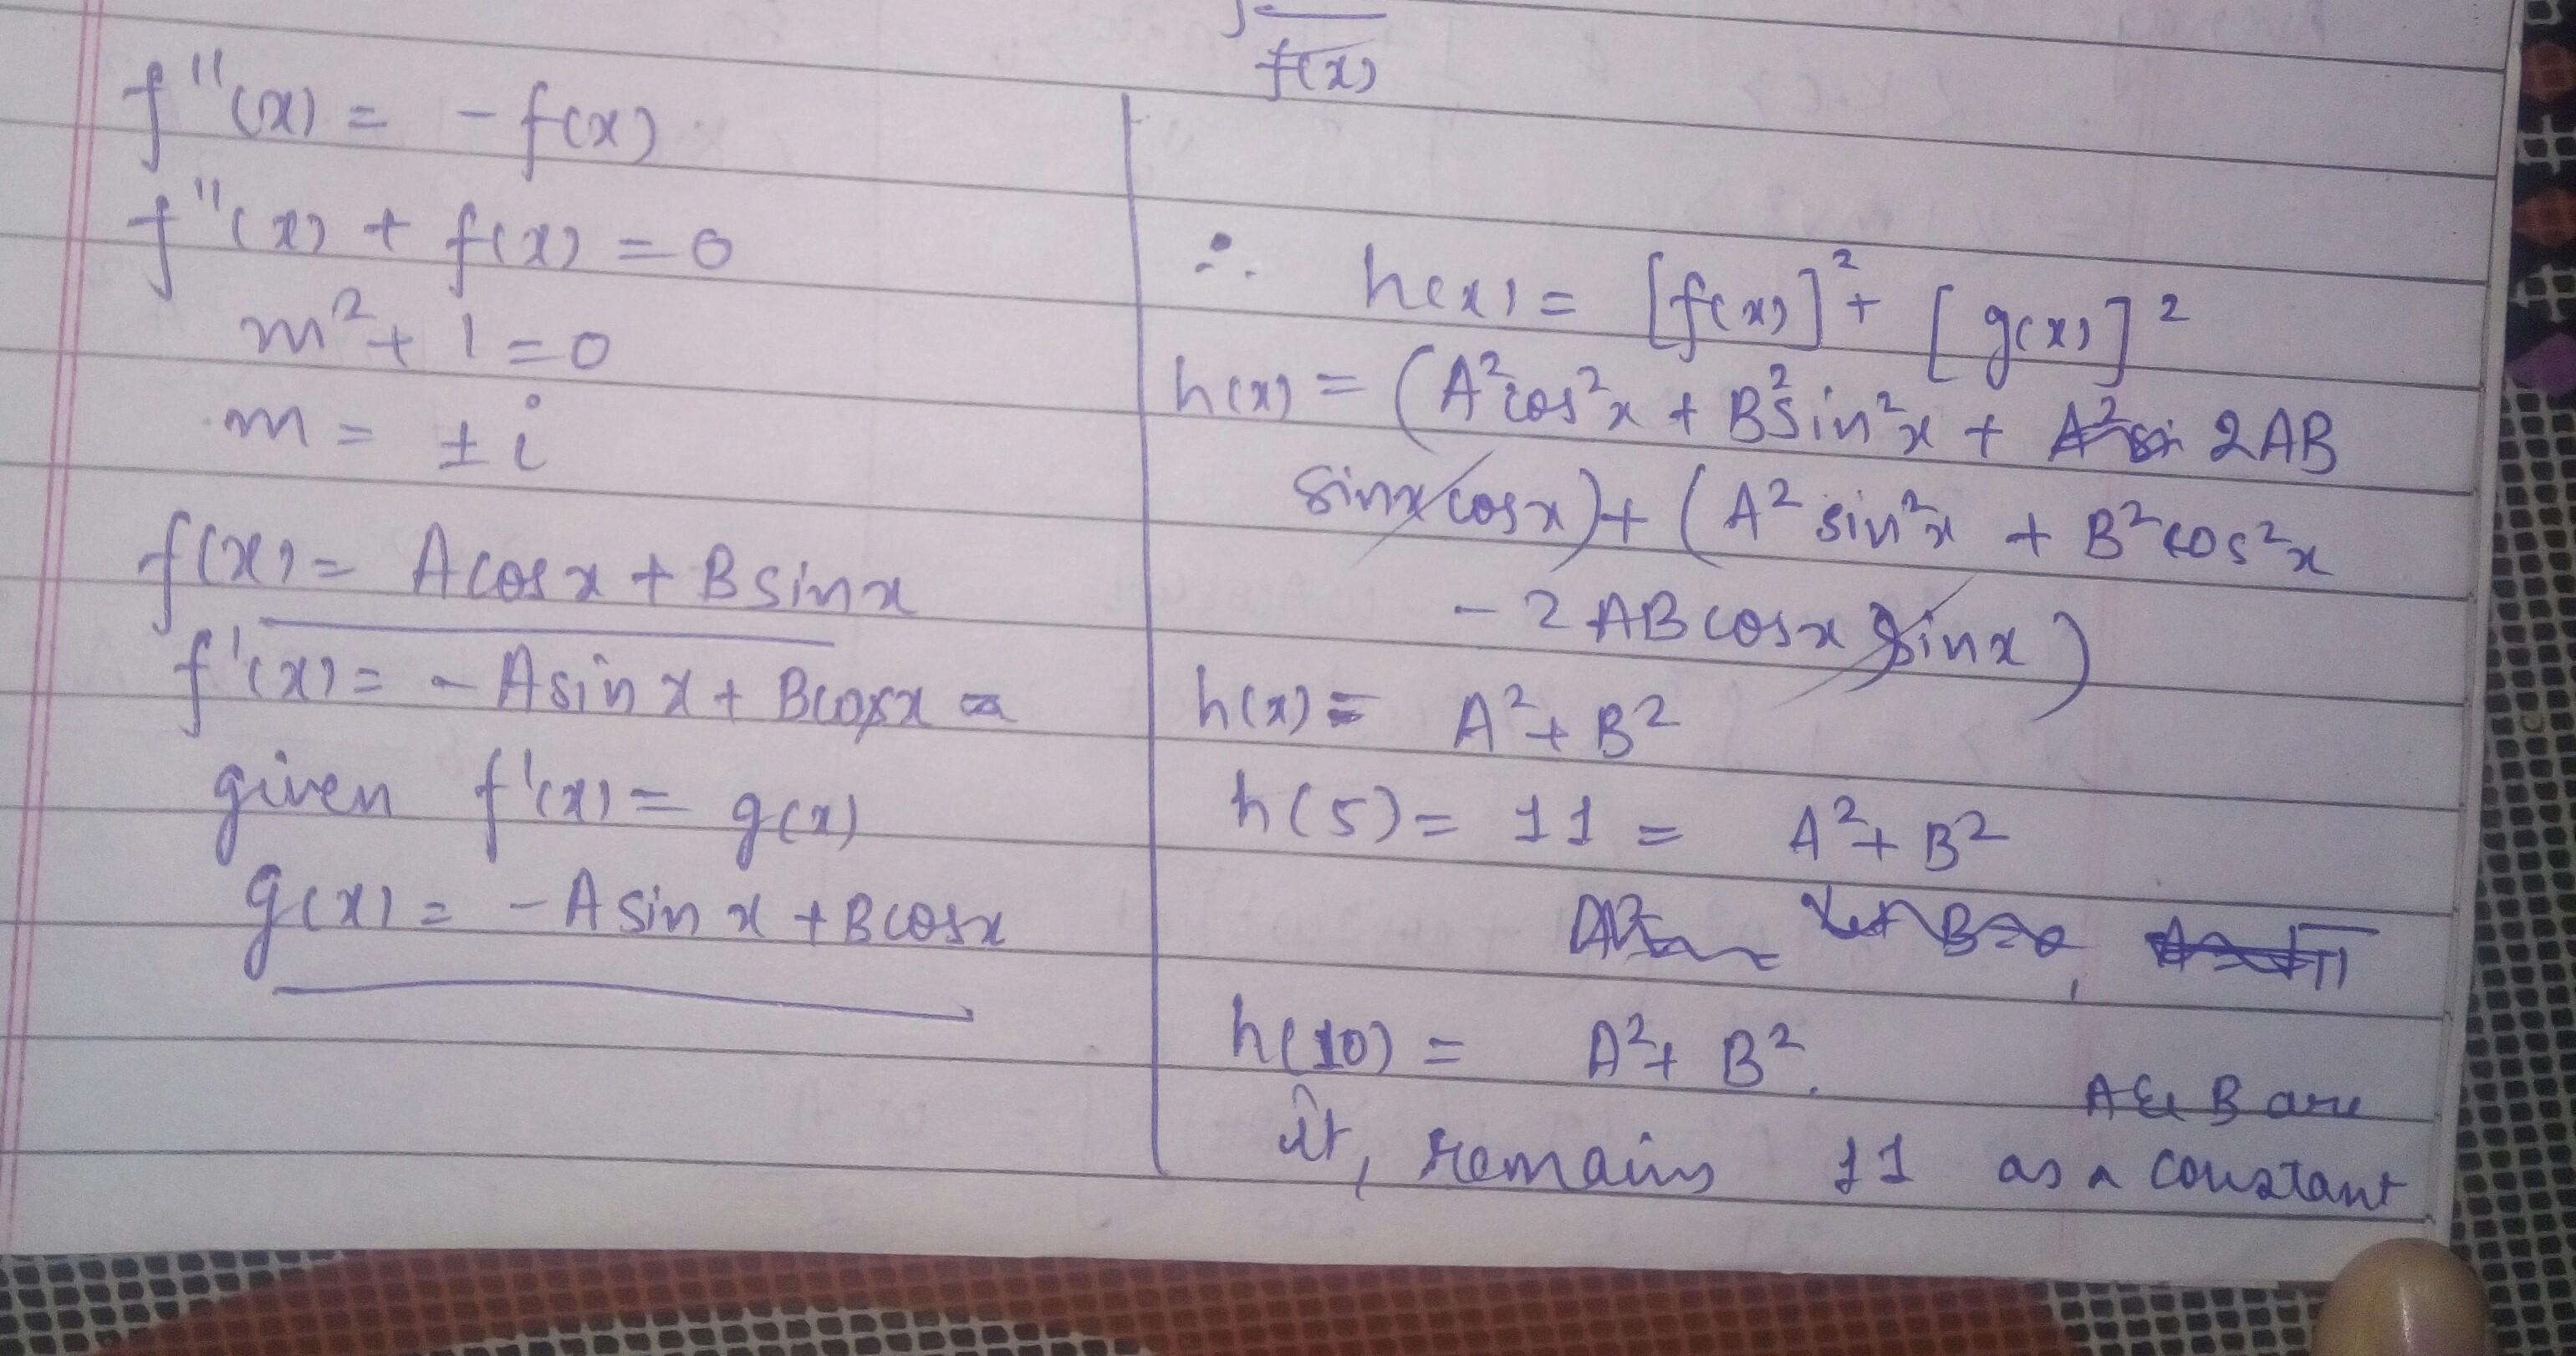 f(x)
f''(x) = - f(x)
f''(x) + f(x) = 0
m² + 1 = 0
m = ± i
f(x) = A cos x + B sin x
f'(x) = - A sin x + B cos x
given f'(x) = g(x)
g(x) = - A sin x + B cos x
∴ h(x) = [f(x)]² + [g(x)]²
h(x) = (A² cos² x + B² sin² x + 2AB
sin x cos x) + (A² sin² x + B² cos² x
- 2 AB cos x sin x)
h(x) = A² + B²
h(5) = 11 = A² + B²
Let B = 0,
h(10) = A² + B².
A & B are
it, remains 11 as a constant